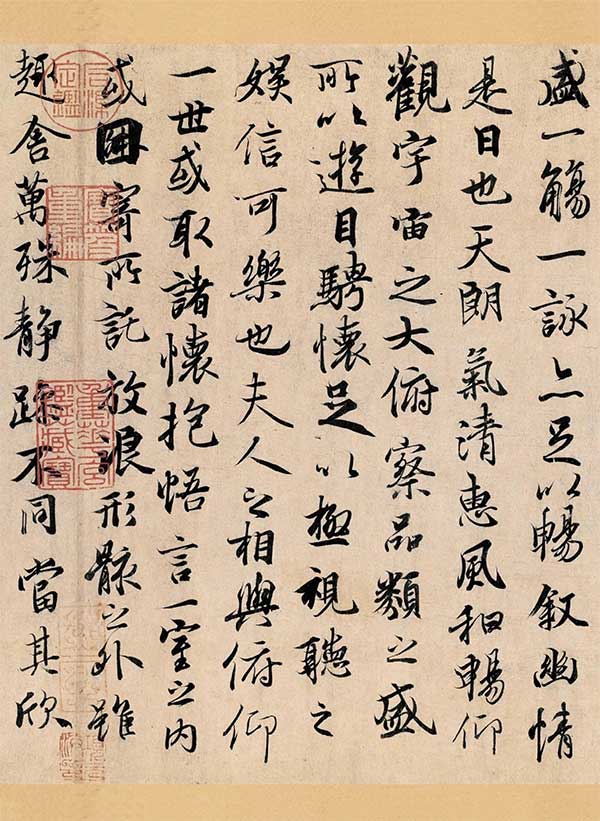 盛一觴一詠亦足以暢叙幽情
是日也天朗氣清惠風和暢仰
觀宇宙之大俯察品類之盛
所以遊目騁懷足以極視聽之
娱信可樂也夫人之相與俯仰
一世或取諸懷抱悟言一室之内
或因寄所託放浪形骸之外雖
趣舍萬殊静躁不同當其欣